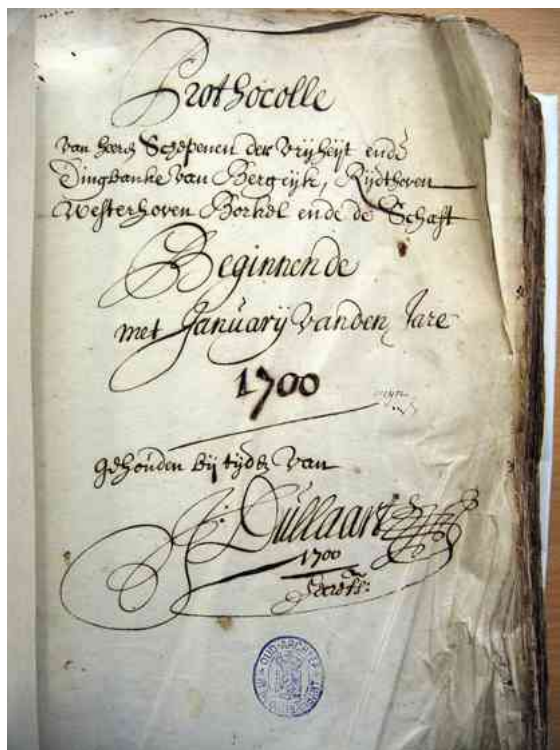 Prothocolle
van heeren Schepenen der Vrijheijt ende
Dingbanke van Bergeijk, Rijdthoven
Westerhoven Borkel ende de Schaft
Beginnende
met Januarij vanden Jare
1700
gehouden bij tijde van
Dullaart
1700
OUD-ARCHIEF